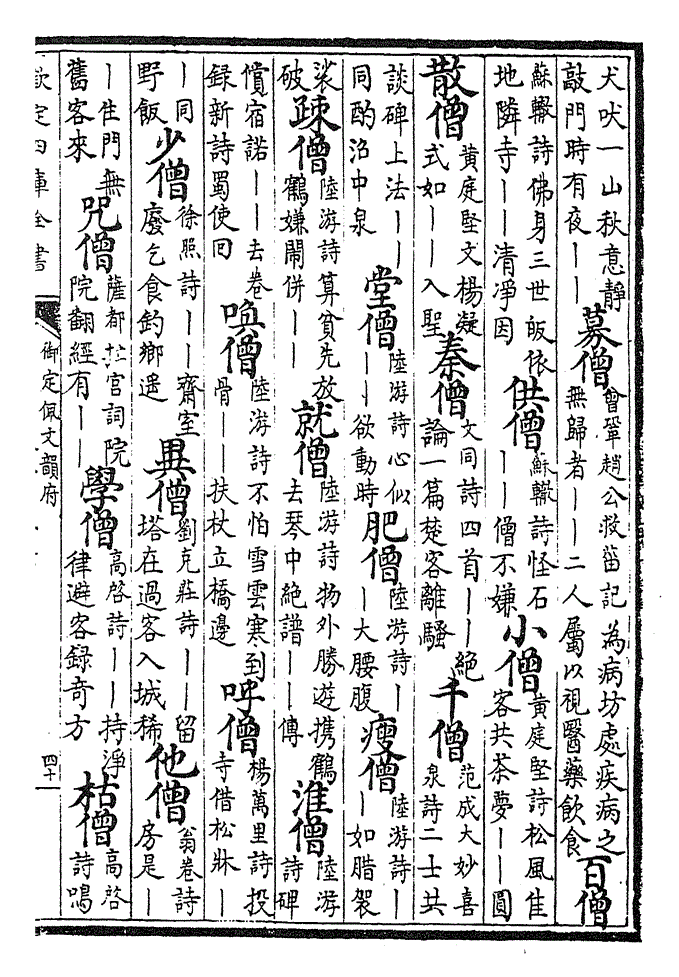 犬吠一山秋意靜敲門時有夜丨丨 募僧 曾鞏趙公救菑記為病坊處疾病之無歸者丨丨二人屬以視醫藥飲食 百僧
蘇轍詩佛身三世皈依地隣寺丨丨清淨因 供僧 蘇轍詩怪石丨丨僧不嫌 小僧 黄庭堅詩松風佳客共茶夢丨丨圓
散僧 黄庭堅文楊凝式如丨丨入聖 秦僧 文同詩四首丨丨絶論一篇楚客離騷 千僧 范成大妙喜泉詩二士共
談碑上法丨丨同酌沼中泉 堂僧 陸游詩心似丨丨欲動時 肥僧 陸游詩丨丨大腰腹 瘦僧 陸游詩丨丨如腊袈
裟破 疎僧 陸游詩算貧先放鶴嫌閙併丨丨 就僧 陸游詩物外勝遊携鶴去琴中絶譜丨丨傳 淮僧 陸游詩碑
償宿諾丨丨去卷録新詩蜀使回 喚僧 陸游詩不怕雪雲寒到骨丨丨扶杖立橋邊 呼僧 楊萬里詩投寺借松牀丨
丨同野飯 少僧 徐照詩丨丨齋室廢乞食釣鄉遥 異僧 劉克莊詩丨丨留塔在過客入城稀 他僧 翁卷詩房是丨
丨住門無舊客來 咒僧 薩都拉宮詞院院翻經有丨丨 學僧 高啓詩丨丨持淨律避客録奇方 枯僧 高啓詩鳴
欽定四庫全書 御定佩文韻府 四十一